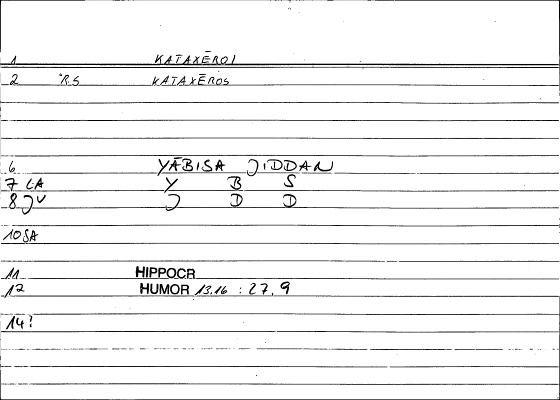 1 KATAXĒROI
2 °R.S KATAXĒROS
6 YĀBISA JIDDAN
7 LA Y B S
8 JU J D D
10 SA
11 HIPPOCR
12 HUMOR 13.16 : 27, 9
14!